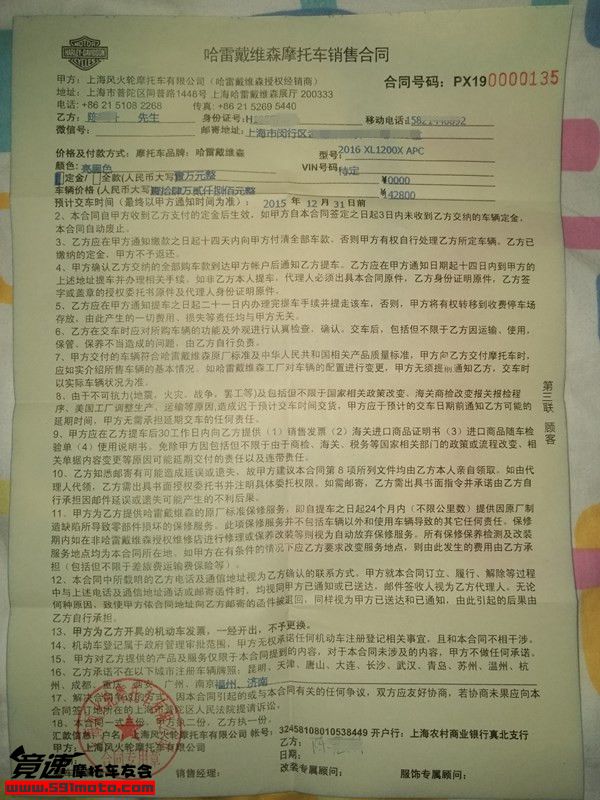 MOTOR
HARLEY-DAVIDSON
哈雷戴维森摩托车销售合同
甲方：上海风火轮摩托车有限公司（哈雷戴维森授权经销商）
合同号码：PX190000135
地址：上海市普陀区同普路1446号 上海哈雷戴维森展厅 200333
电话：+86 21 5108 2268 传真：+86 21 5269 5440
乙方：陈 先生 身份证号：H 移动电话
微信号： 邮寄地址：上海市闵行区
价格及付款方式：摩托车品牌：哈雷戴维森 型号：2016 XL1200X APC
颜色：亮黑色 VIN号码 待定
定金/ 全款(人民币大写)壹万元整 ¥ 0000
车辆价格(人民币大写)壹拾肆万贰仟捌佰元整 ¥ 142800
预计交车时间（最终以甲方通知时间为准）：2015 年 12 月 31日前
2、本合同自甲方收到乙方支付的定金后生效，如甲方自本合同签定之日起3日内未收到乙方交纳的车辆定金，
本合同自动废止。
3、乙方应在甲方通知缴款之日起十四天内向甲方付清全部车款。否则甲方有权自行处理乙方所定车辆。乙方已
缴纳的定金，甲方不予返还。
4、甲方确认乙方交纳的全部购车款到达甲方帐户后通知乙方提车。乙方应在甲方通知日期起十四日内到甲方的
上述地址提车并办理相关手续。如非乙方本人提车，代理人必须出具本合同原件，乙方身份证明原件，乙方签
字或盖章的授权委托书原件及代理人身份证明原件。
5、乙方应在甲方通知提车之日起二十一日内办完提车手续并提走该车，否则，甲方将有权转移到收费停车场
存放，由此产生的一切费用、损失等责任均与甲方无关。
6、乙方在交车时应对所购车辆的功能及外观进行认真检查、确认。交车后，包括但不限于乙方因运输、使用，
保管、保养不当造成的问题，由乙方自行负责。
7、甲方交付的车辆符合哈雷戴维森原厂标准及中华人民共和国相关产品质量标准，甲方向乙方交付摩托车时，
应如实介绍所售车辆的基本情况。如哈雷戴维森工厂对车辆的配置进行变更，甲方无须提前通知乙方，交车时
以实际车辆状况为准。
8、由于不可抗力(地震，火灾，战争，罢工等)及包括但不限于国家相关政策改变、海关商检改变报关报检程
序、美国工厂调整生产、运输等原因,造成迟于预计交车时间交货，甲方应于预计的交车日期前通知乙方可能的
延期时间，甲方无需承担延期交车的任何责任。
9、甲方应在乙方提车后30工作日内向乙方提供（1）销售发票（2）海关进口商品证明书（3）进口商品随车检
验单（4）使用说明书。免除甲方因包括但不限于由于商检、海关、税务等国家相关部门的政策或流程改变、相
关单据内容变更等原因可能延期交付的责任以及连带责任。
10、乙方知悉邮寄有可能造成延误或遗失。故甲方建议本合同第 8 项所列文件均由乙方本人亲自领取。如由代
理人代领，乙方需出具书面授权委托书并注明具体委托权限。如需邮寄，乙方需出具书面指令并承诺由乙方自
行承担因邮件延误或遗失可能产生的不利后果。
11、甲方为乙方提供哈雷戴维森的原厂标准保修服务，即自提车之日起24个月内（不限公里数）提供因原厂制
造缺陷所导致零部件损坏的保修服务。此项保修服务并不包括车辆以外和使用车辆导致的其它任何责任。保修
期内如在非哈雷戴维森授权维修店进行修理或保养改装等则视为自动放弃保修服务。所有保修保养检测及改装
服务地点均为本合同所在地。如甲方在有条件的情况下应乙方要求改变服务地点，则由此发生的费用由乙方承
担（包括但不限于差旅费运输费保险等）。
12、本合同中所载明的乙方电话及通信地址视为乙方确认的联系方式，甲方就本合同订立、履行、解除等过程
中与上述电话及通信地址通话或邮寄函件时，均视同甲方已通知或已送达，邮件签收人视为乙方代理人。无论
何种原因，致使甲方依合同地址向乙方邮寄的函件被退回，同样视为甲方已送达和已通知，由此引起的后果由
乙方自行承担。
13、甲方为乙方开具的机动车发票，一经开出，不予更换。
14、机动车登记属于政府管理审批范围，甲方无权承诺任何机动车注册登记相关事宜，且和本合同不相干涉。
15、甲方对乙方提供的产品及服务仅限于本合同提到的内容，对于本合同未涉及的内容，甲方不做任何承诺。
16、乙方承诺不在以下城市注册车辆牌照：昆明，天津、唐山、大连、长沙、武汉、青岛、苏州、温州、杭
州、成都、 、广州、南京 福州、济南
17、解决合同争议的方式：因本合同引起的或与本合同有关的任何争议，双方应友好协商，若协商未果应向本
合同签订地所在的上海市普陀区人民法院提请诉讼。
18、本合同一式叁份，甲方执二份，乙方执一份。
汇款信息：户名：上海风火轮摩托车有限公司 帐号：32458108010538449 开户行：上海农村商业银行真北支行
甲方：上海风火轮摩托车有限公司 乙方：
日期：
销售经理： 改装专属顾问： 服饰专属顾问：
第三联 顾客
合同专用章
竞速 摩托车友会
www.591moto.com